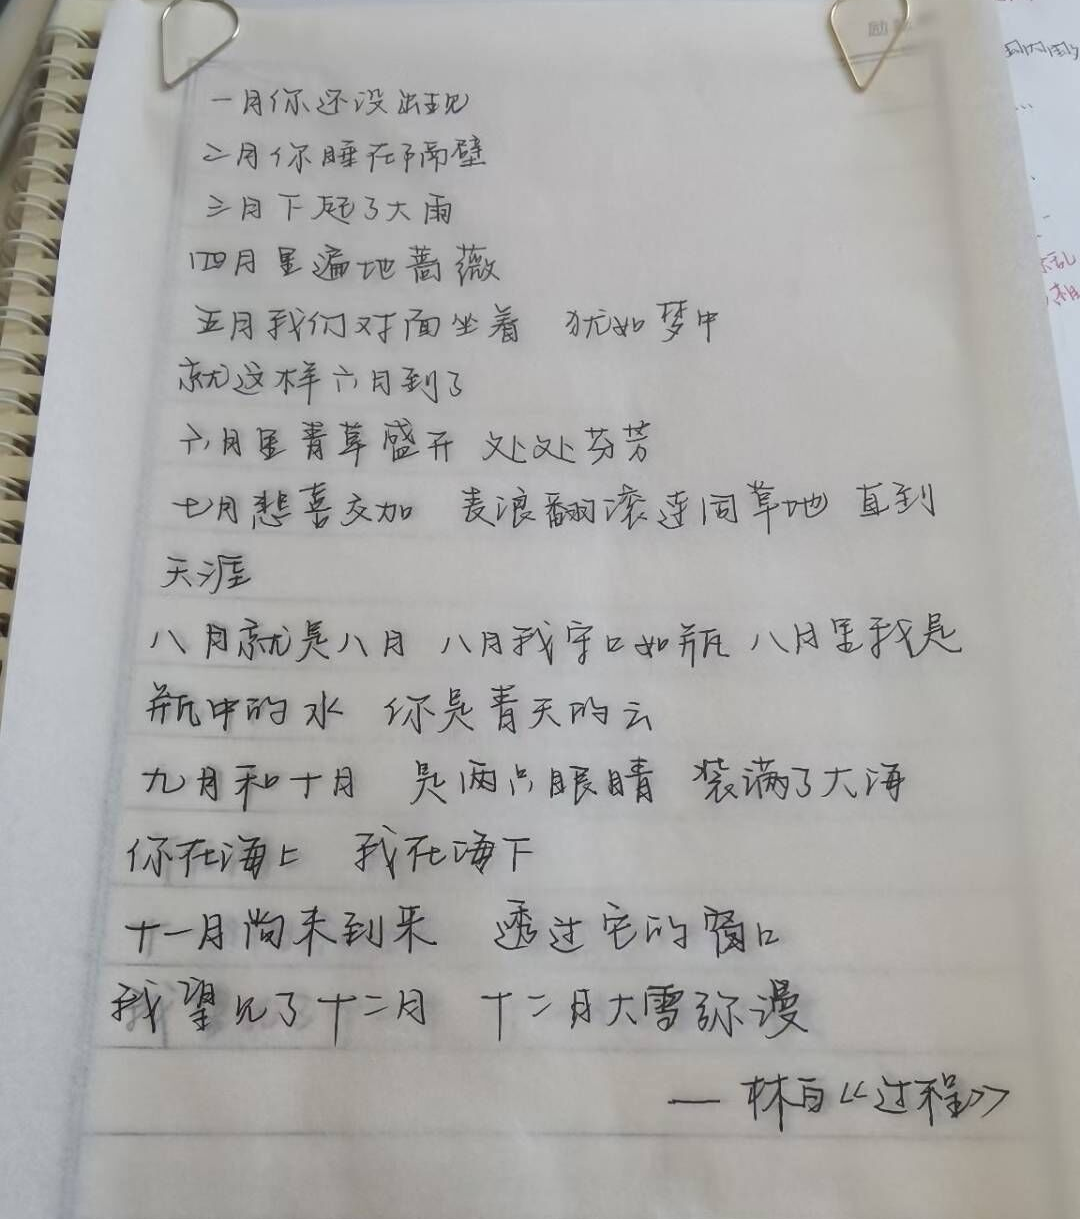 一月你还没出现
二月你睡在隔壁
三月下起了大雨
四月里遍地蔷薇
五月我们对面坐着 犹如梦中
就这样六月到了
六月里青草盛开 处处芬芳
七月悲喜交加 麦浪翻滚连同草地 直到
天涯
八月就是八月 八月我守口如瓶 八月里我是
瓶中的水 你是青天的云
九月和十月 是两只眼睛 装满了大海
你在海上 我在海下
十一月尚未到来 透过它的窗口
我望见了十二月 十二月大雪弥漫
— 林白《过程》